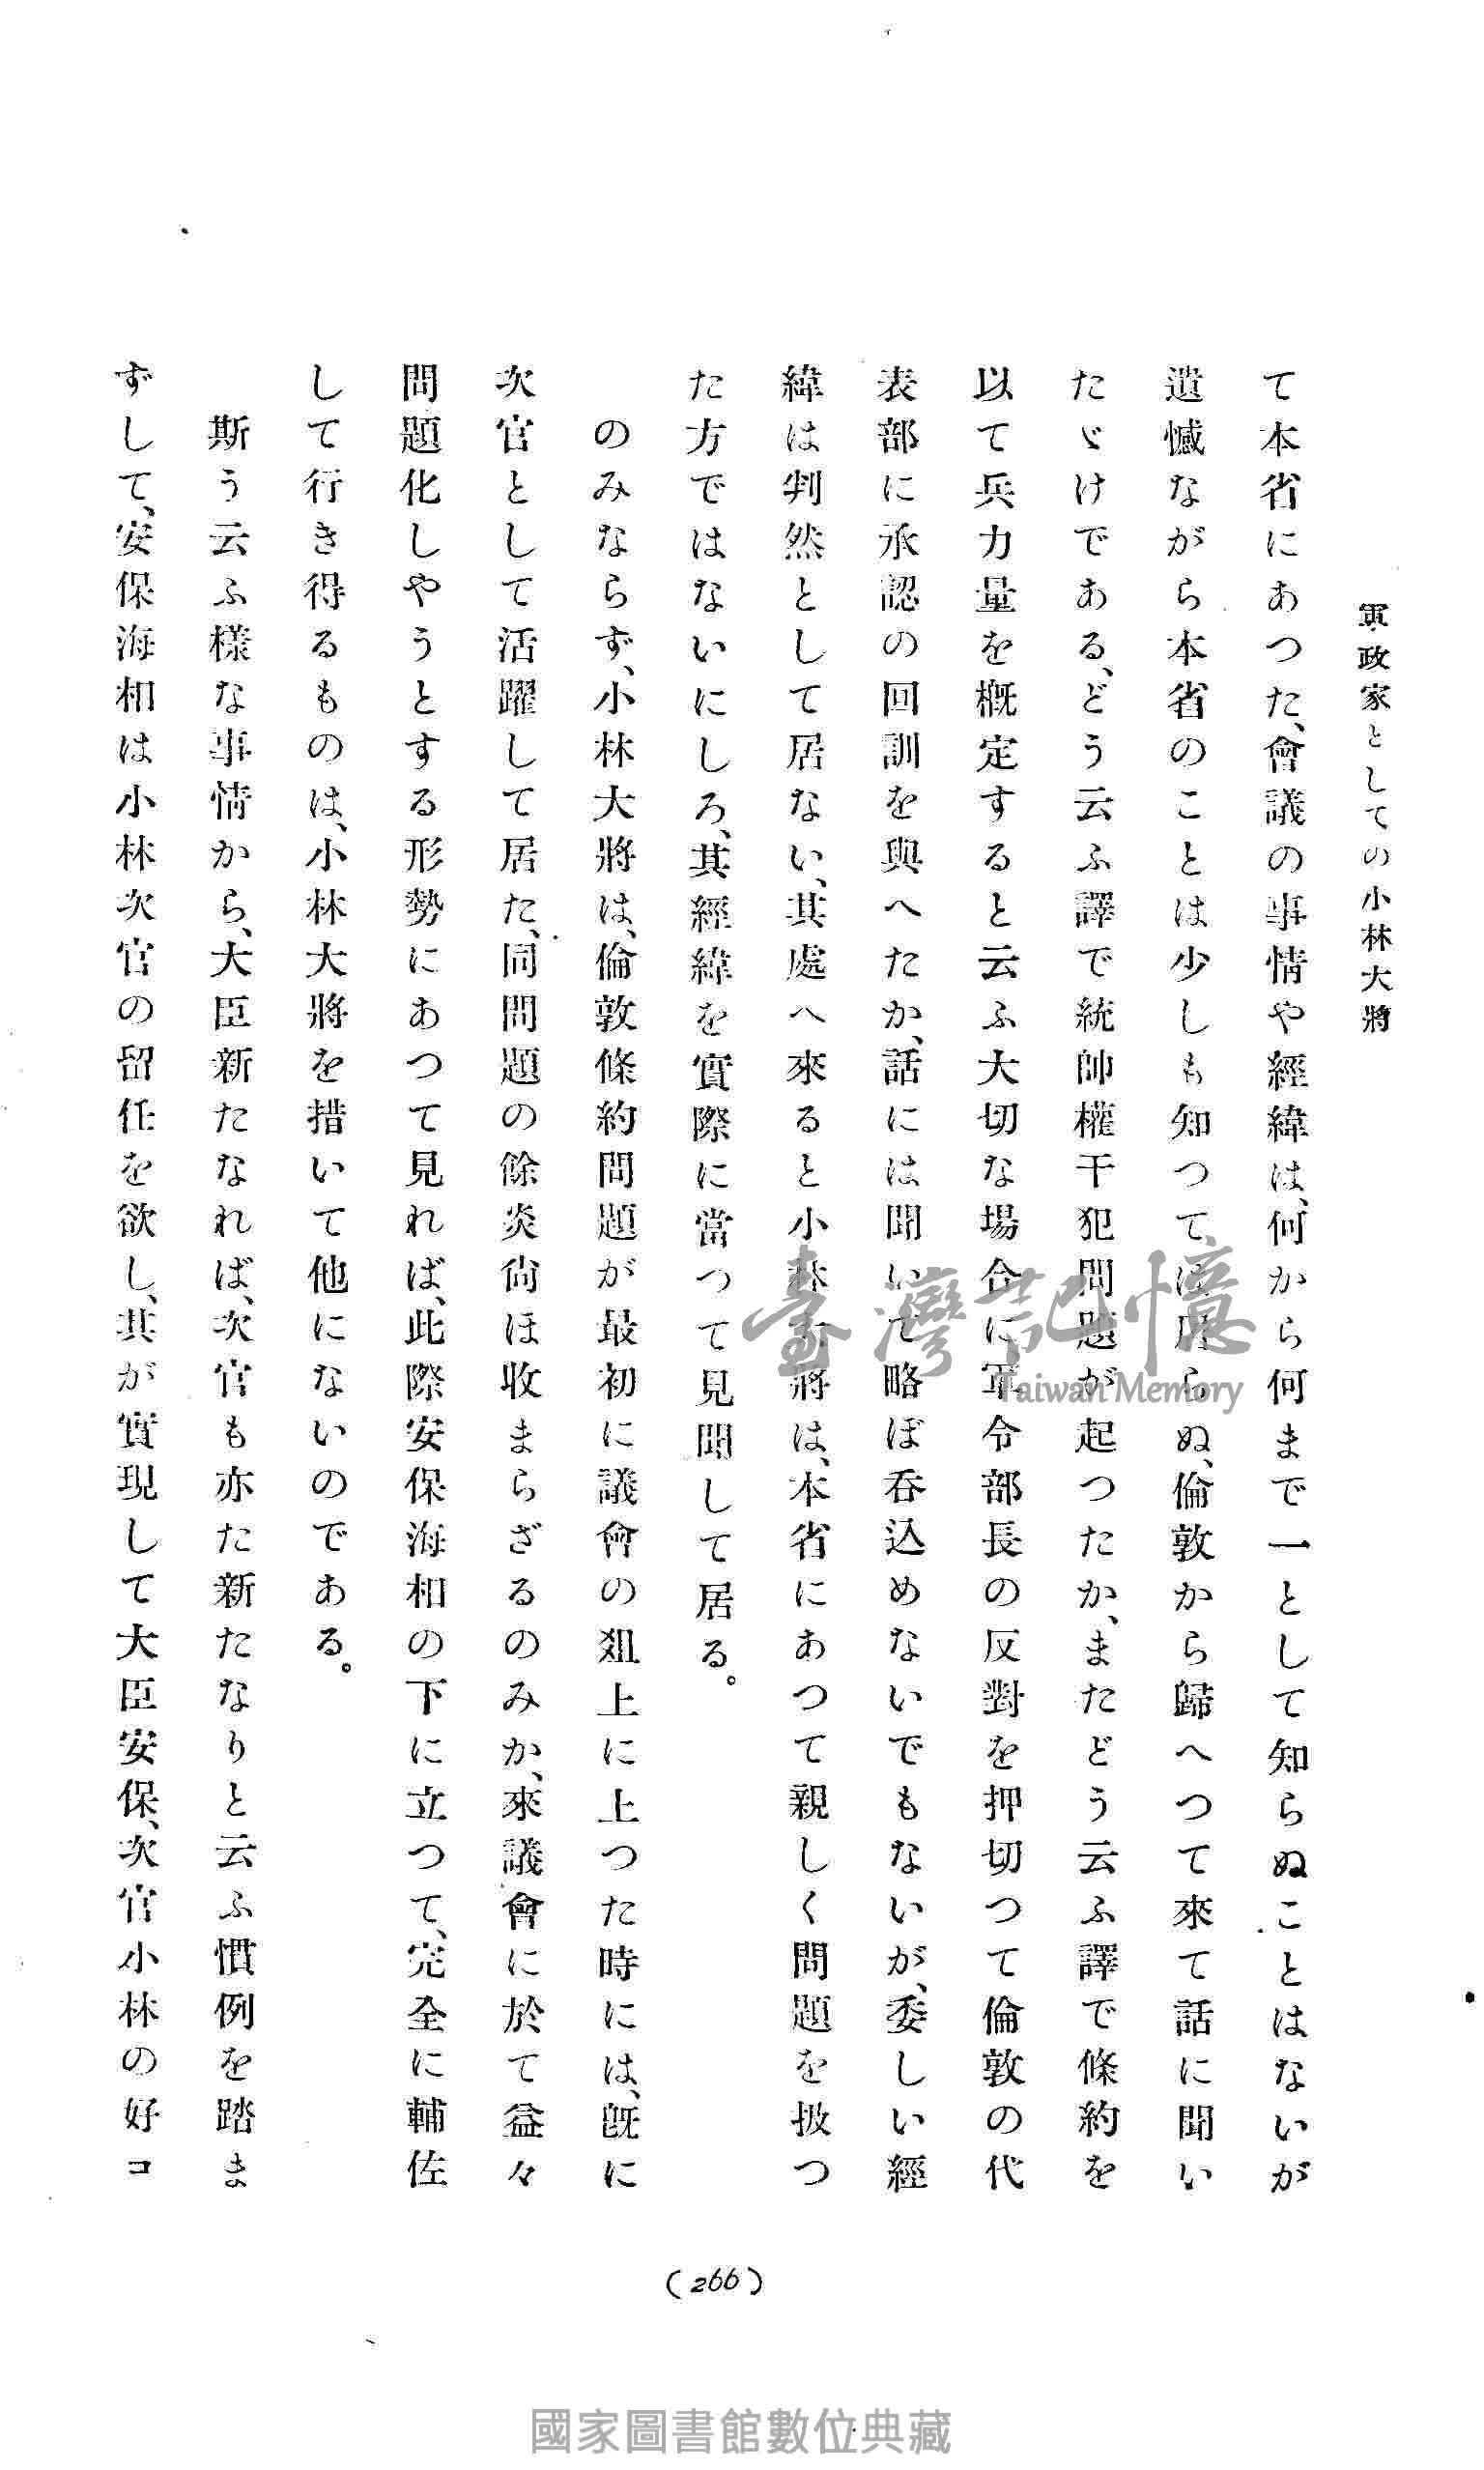 軍政家としての小林大將
て本省にあつた、會議の事情や經緯は、何から何まで一として知らぬことはないが
遺憾ながら本省のことは少しも知つては居らぬ、倫敦から歸へつて來て話に聞い
たゞけである、どう云ふ譯で統帥權干犯問題が起つたか、まだどう云ふ譯で條約を
以て兵力量を概定すると云ふ大切な場合に軍令部長の反對を押切つて倫敦の代
表部に承認の回訓を與へたか、話には聞いて略ぼ呑込めないでもないが、委しい經
緯は判然として居ない、其處へ來ると小林大將は、本省にあつて親しく問題を扱つ
た方ではないにしろ、其經緯を實際に當つて見聞して居る。
のみならず、小林大將は、倫敦條約問題が最初に議會の爼上に上つた時には、旣に
次官として活躍して居た、同問題の餘炎尙ほ收まらざるのみか、來議會に於て益々
問題化しやうとする形勢にあつて見れば、此際安保海相の下に立つて、完全に輔佐
して行き得るものは、小林大將を措いて他にないのである。
斯う云ふ樣な事情から、大臣新たなれば、次官も亦た新たなりと云ふ慣例を踏ま
ずして、安保海相は小林次官の留任を欲し、其が實現して大臣安保、次官小林の好コ
(266)
臺灣記憶
Taiwan Memory
國家圖書館數位典藏